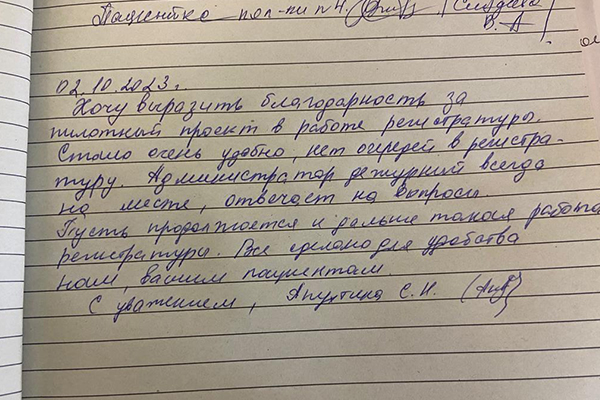 Пациентка пол-ки №4.
В. А
02.10.2023г.
Хочу выразить благодарность за
пилотный проект в работе регистратуры.
Стало очень удобно, нет очередей в регистра-
туру. Администратор дежурный всегда
на месте, отвечает на вопросы.
Пусть продолжается и дальше такая работа
регистратуры. Все сделано для удобства
нам, вашим пациентам
С уважением, Апухтина С.Н.